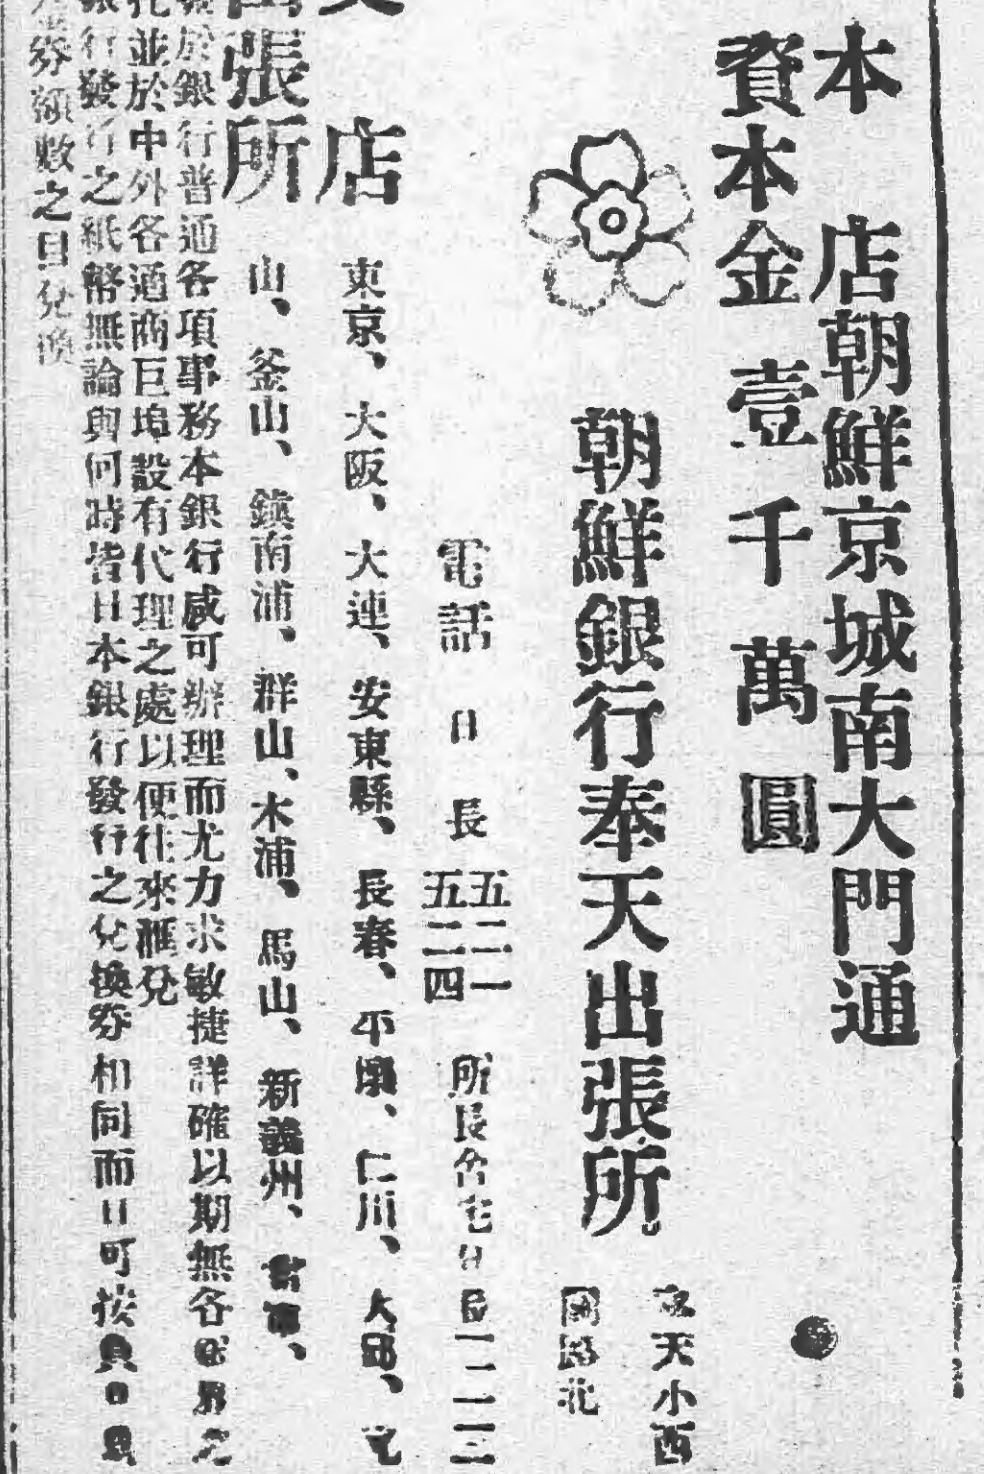 本店朝鮮京城南大門通
資本金壹千萬圓
朝鮮銀行奉天出張所
天小西
北
電話 日長 五二一 五二四 所長舍宅日長一二二三
店 東京、大阪、大連、安東縣、長春、平壤、仁川、大邱、
張所 山、釜山、鎮南浦、群山、木浦、馬山、新義州、
於銀行普通各項事務本銀行咸可辦理而尤力求敏捷詳確以期無各界之
並於中外各通商巨埠設有代理之處以便往來滙兌
銀行發行之紙幣無論與何時皆日本銀行發行之兌換券相同而且可按
券額數之且兌換